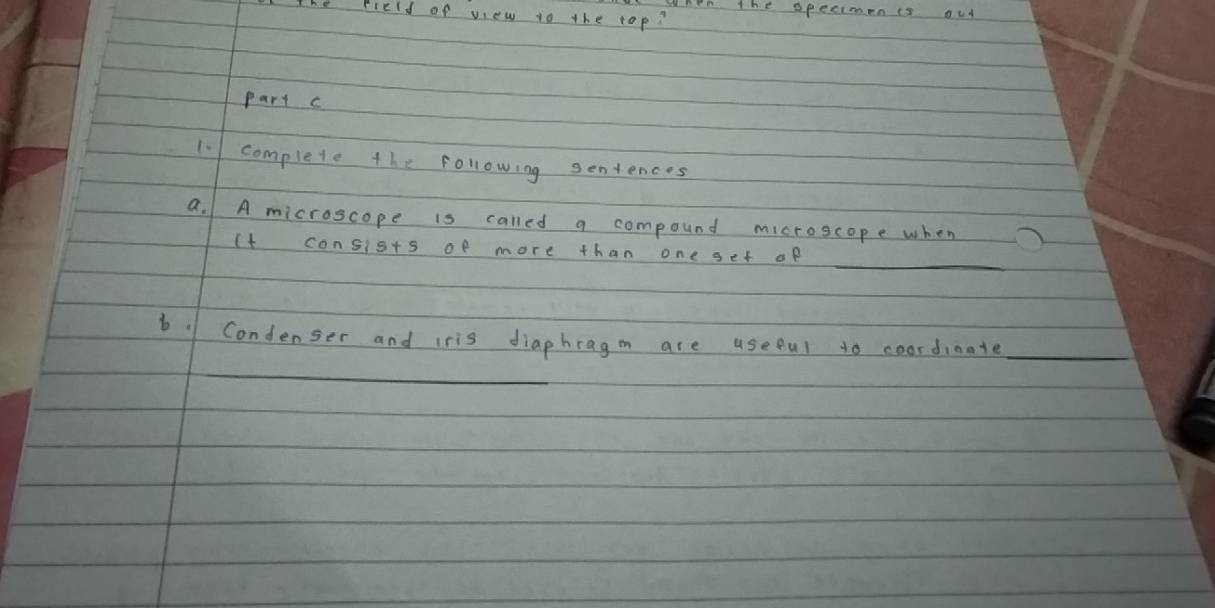 the field of view to the top? when the specimen is out
Part C
1. Complete the following sentences
a. A microscope is called a compound microscope when
it consists of more than one set of
b. Condenser and iris diaphragm are useful to coordinate